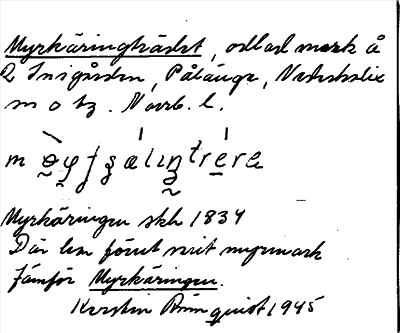 Myrkäringträdet, odlad mark å
2 Inigården, Pålänge, Nederkalix
sn o tg. Norrb. l.
Myrkäringen skh 1834
Där len förut varit myrmark
Jämför Myrkäringen.
Kerstin quist 1945